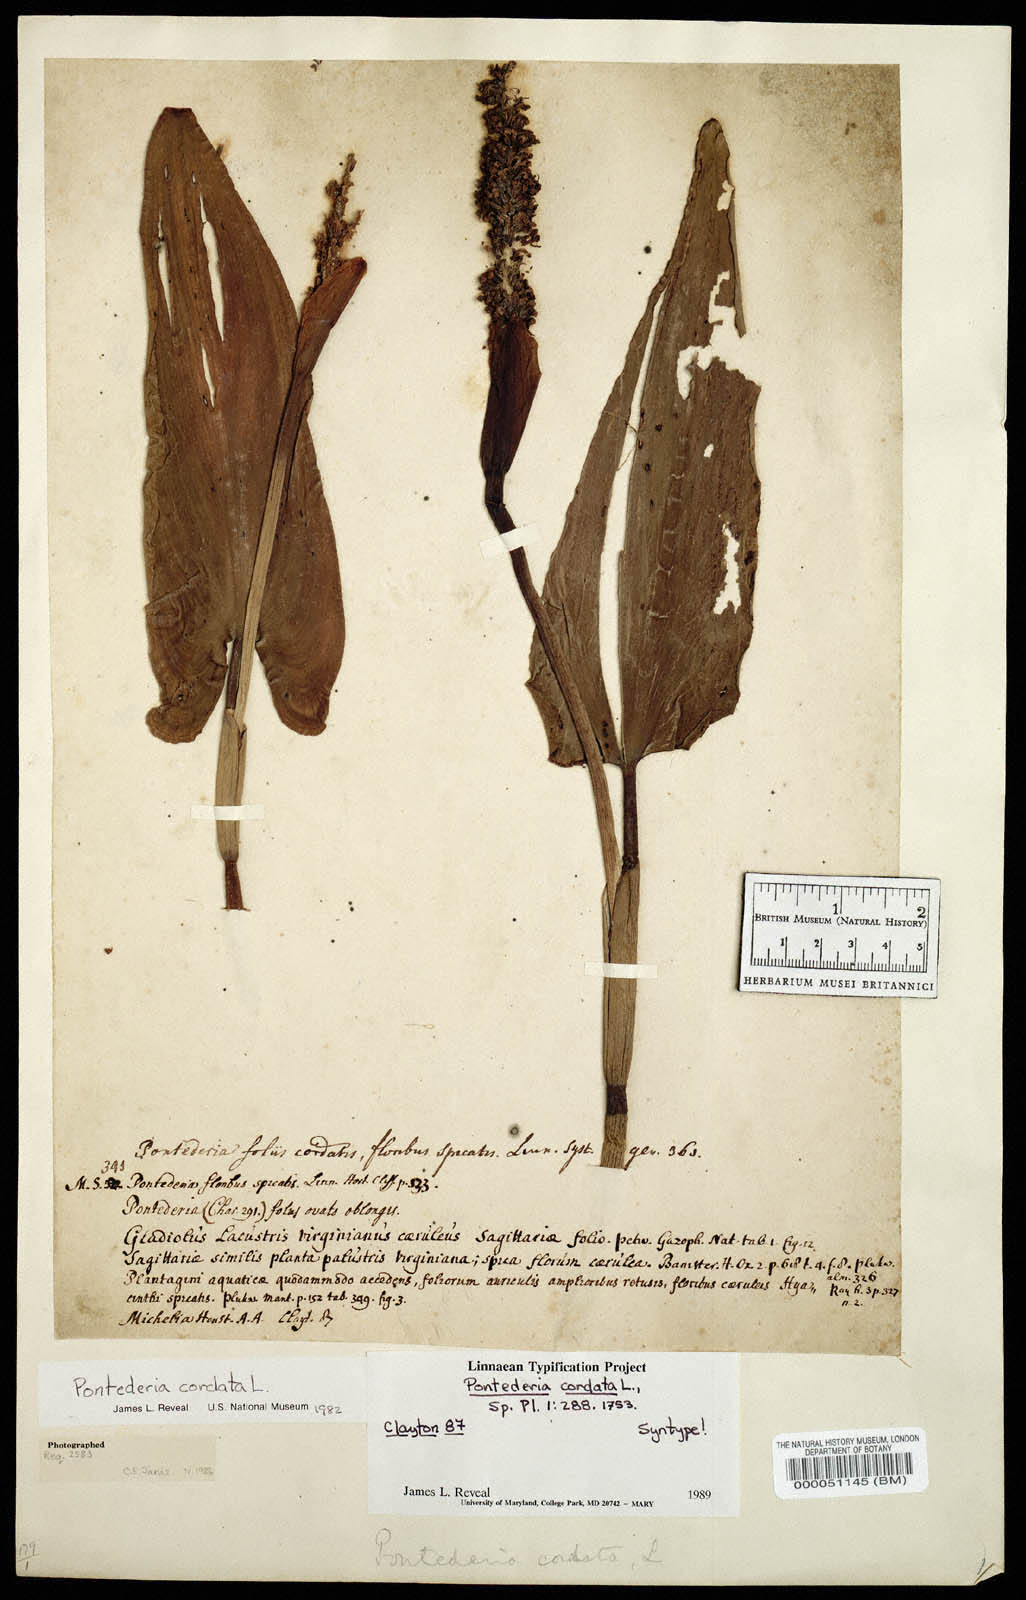 1 2
BRITISH MUSEUM (NATURAL HISTORY)
1 2 3 4 5
HERBARIUM MUSEI BRITANNICI
Pontederia foliis cordatis, floribus spicatis. Linn. Syst. gen. 361.
341
M.S. Pontederia floribus spicatis. Linn. Hort. Cliff. p. 133.
Pontederia (Char. 291.) foliis ovato oblongis.
Gladiolus Lacustris virginianus cæruleus Sagittariæ folio. petiv. Gazoph. Nat. tab. 1. fig. 12.
Sagittariæ similis planta palustris virginiana; spica florum cærulea. Banister. H. Ox. 2. p. 618 t. 4. f. 8. pluk.
alm. 326
Plantagini aquaticæ quodammodo accedens, foliorum auriculis amplioribus rotusis, floribus cæruleus Hya,,
Ray h. 3 p. 327
n. 2.
cinthi spicatis. pluk. mant. p. 152 tab. 349. fig. 3.
Michelia Houst. A.A. Clayt. 87
Pontederia cordata L.
James L. Reveal U.S. National Museum 1982
Linnaean Typification Project
Pontederia cordata L.,
Sp. Pl. 1: 288. 1753.
Clayton 87 Syntype!
James L. Reveal 1989
University of Maryland, College Park, MD 20742 – MARY
Photographed
Reg. 2583
THE NATURAL HISTORY MUSEUM, LONDON
DEPARTMENT OF BOTANY
000051145 (BM)
Pontederia cordata, L